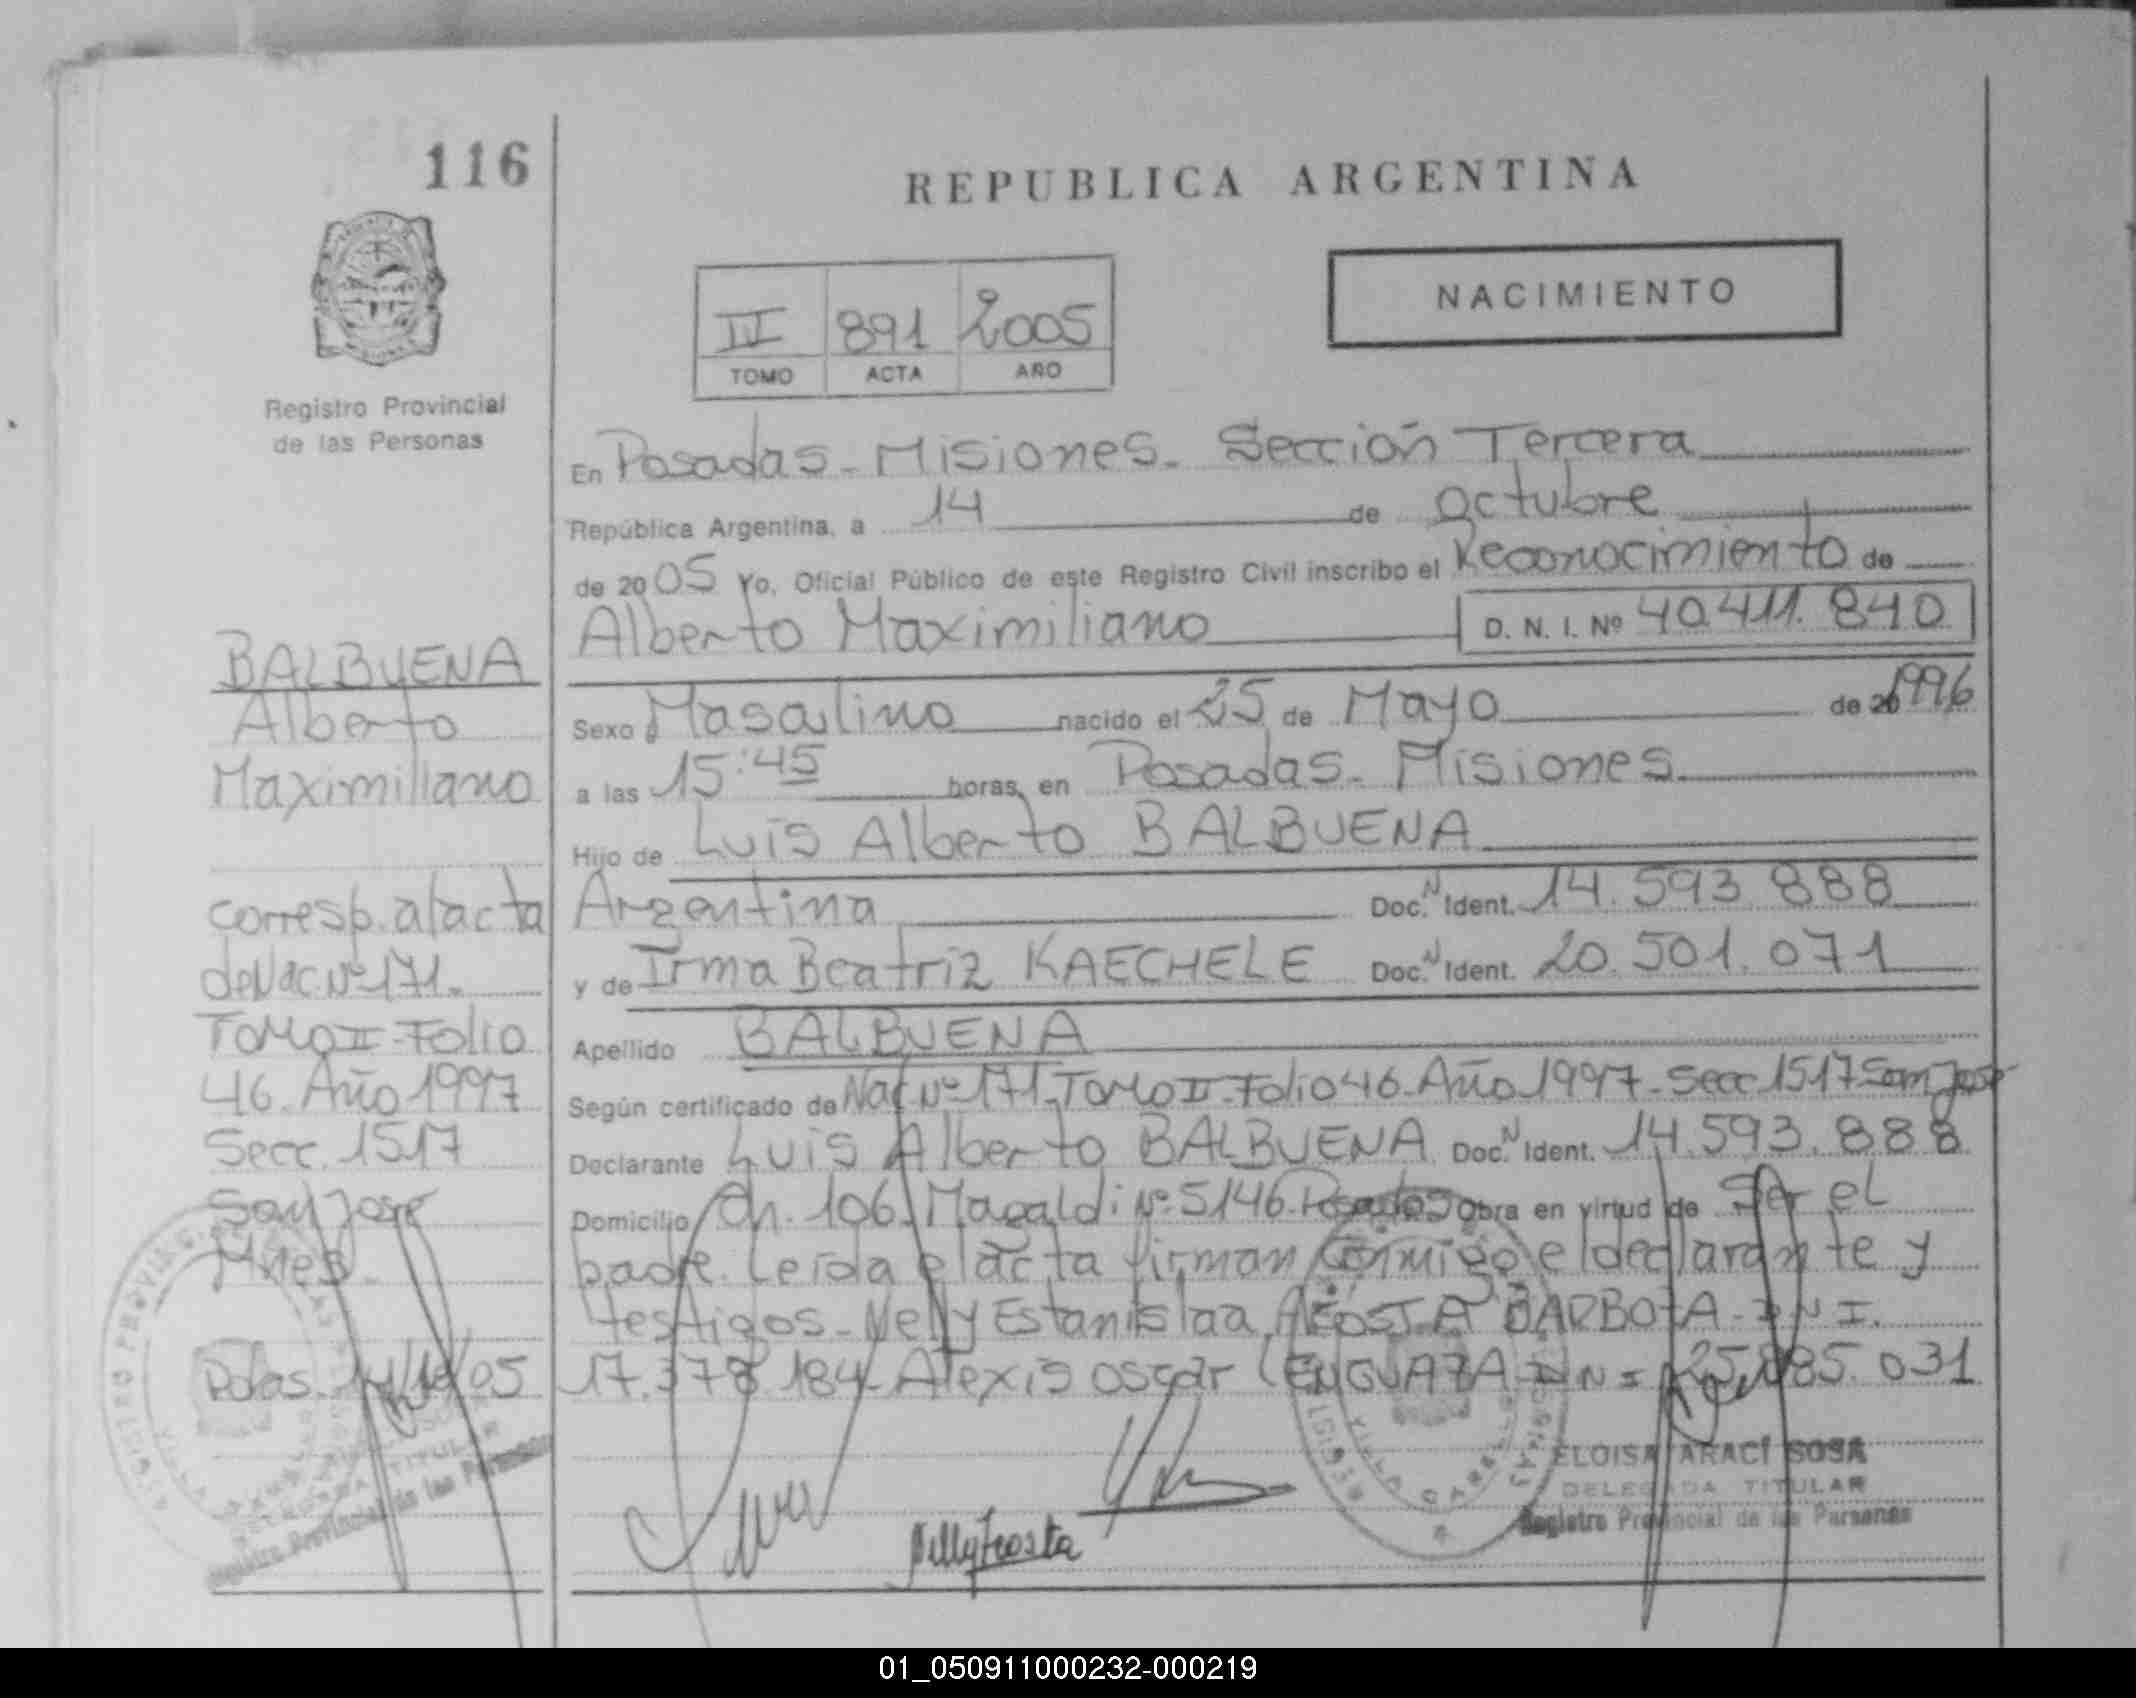 116
REPUBLICA ARGENTINA
NACIMIENTO
IV 891 2005
TOMO ACTA AÑO
Registro Provincial
de las Personas
En Posadas - Misiones - Sección Tercera
República Argentina, a 14 de octubre
de 2005 Yo, Oficial Público de este Registro Civil inscribo el Reconocimiento de
Alberto Maximiliano D. N. I. Nº 40.411.840
Sexo Masculino nacido el 25 de Mayo de 1996
a las 15:45 horas, en Posadas - Misiones
Hijo de Luis Alberto BALBUENA
Argentina Doc. N Ident. 14.593.888
y de Irma Beatriz KAECHELE Doc. N Ident. 20.501.071
Apellido BALBUENA
Según certificado de Nac Nº 171 - Tomo II - Folio 46 - Año 1997 - Secc 1517 San José
Declarante Luis Alberto BALBUENA Doc. N Ident. 14.593.888
Domicilio Ch. 106. Magaldi Nº 5146 - Posadas Obra en virtud de Ser el
padre. Leída el acta firman conmigo el declarante y
testigos - Nelly Estanislaa ACOSTA BARBOZA - DNI.
17.378.184 - Alexis Oscar LENGUAZA DNI 031
Nelly Acosta
ELOISA ARACÍ SOSA
DELEGADA TITULAR
Registro Provincial de las Personas
BALBUENA
Alberto
Maximiliano
corresp. al acta
de Nac. Nº 171.
Tomo II - Folio
46. Año 1997
Secc. 1517
San José
Mnes.
Pdas. 14/10/05
TITULAR
Registro Provincial de las Personas
01_050911000232-000219